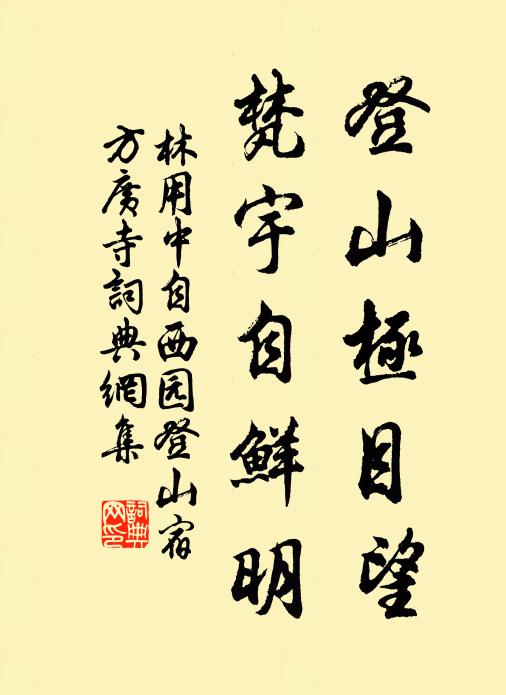 登山極目望
梵宇自鮮明
林用中自西园登山宿
方廣寺詞典網集
詞典
网印